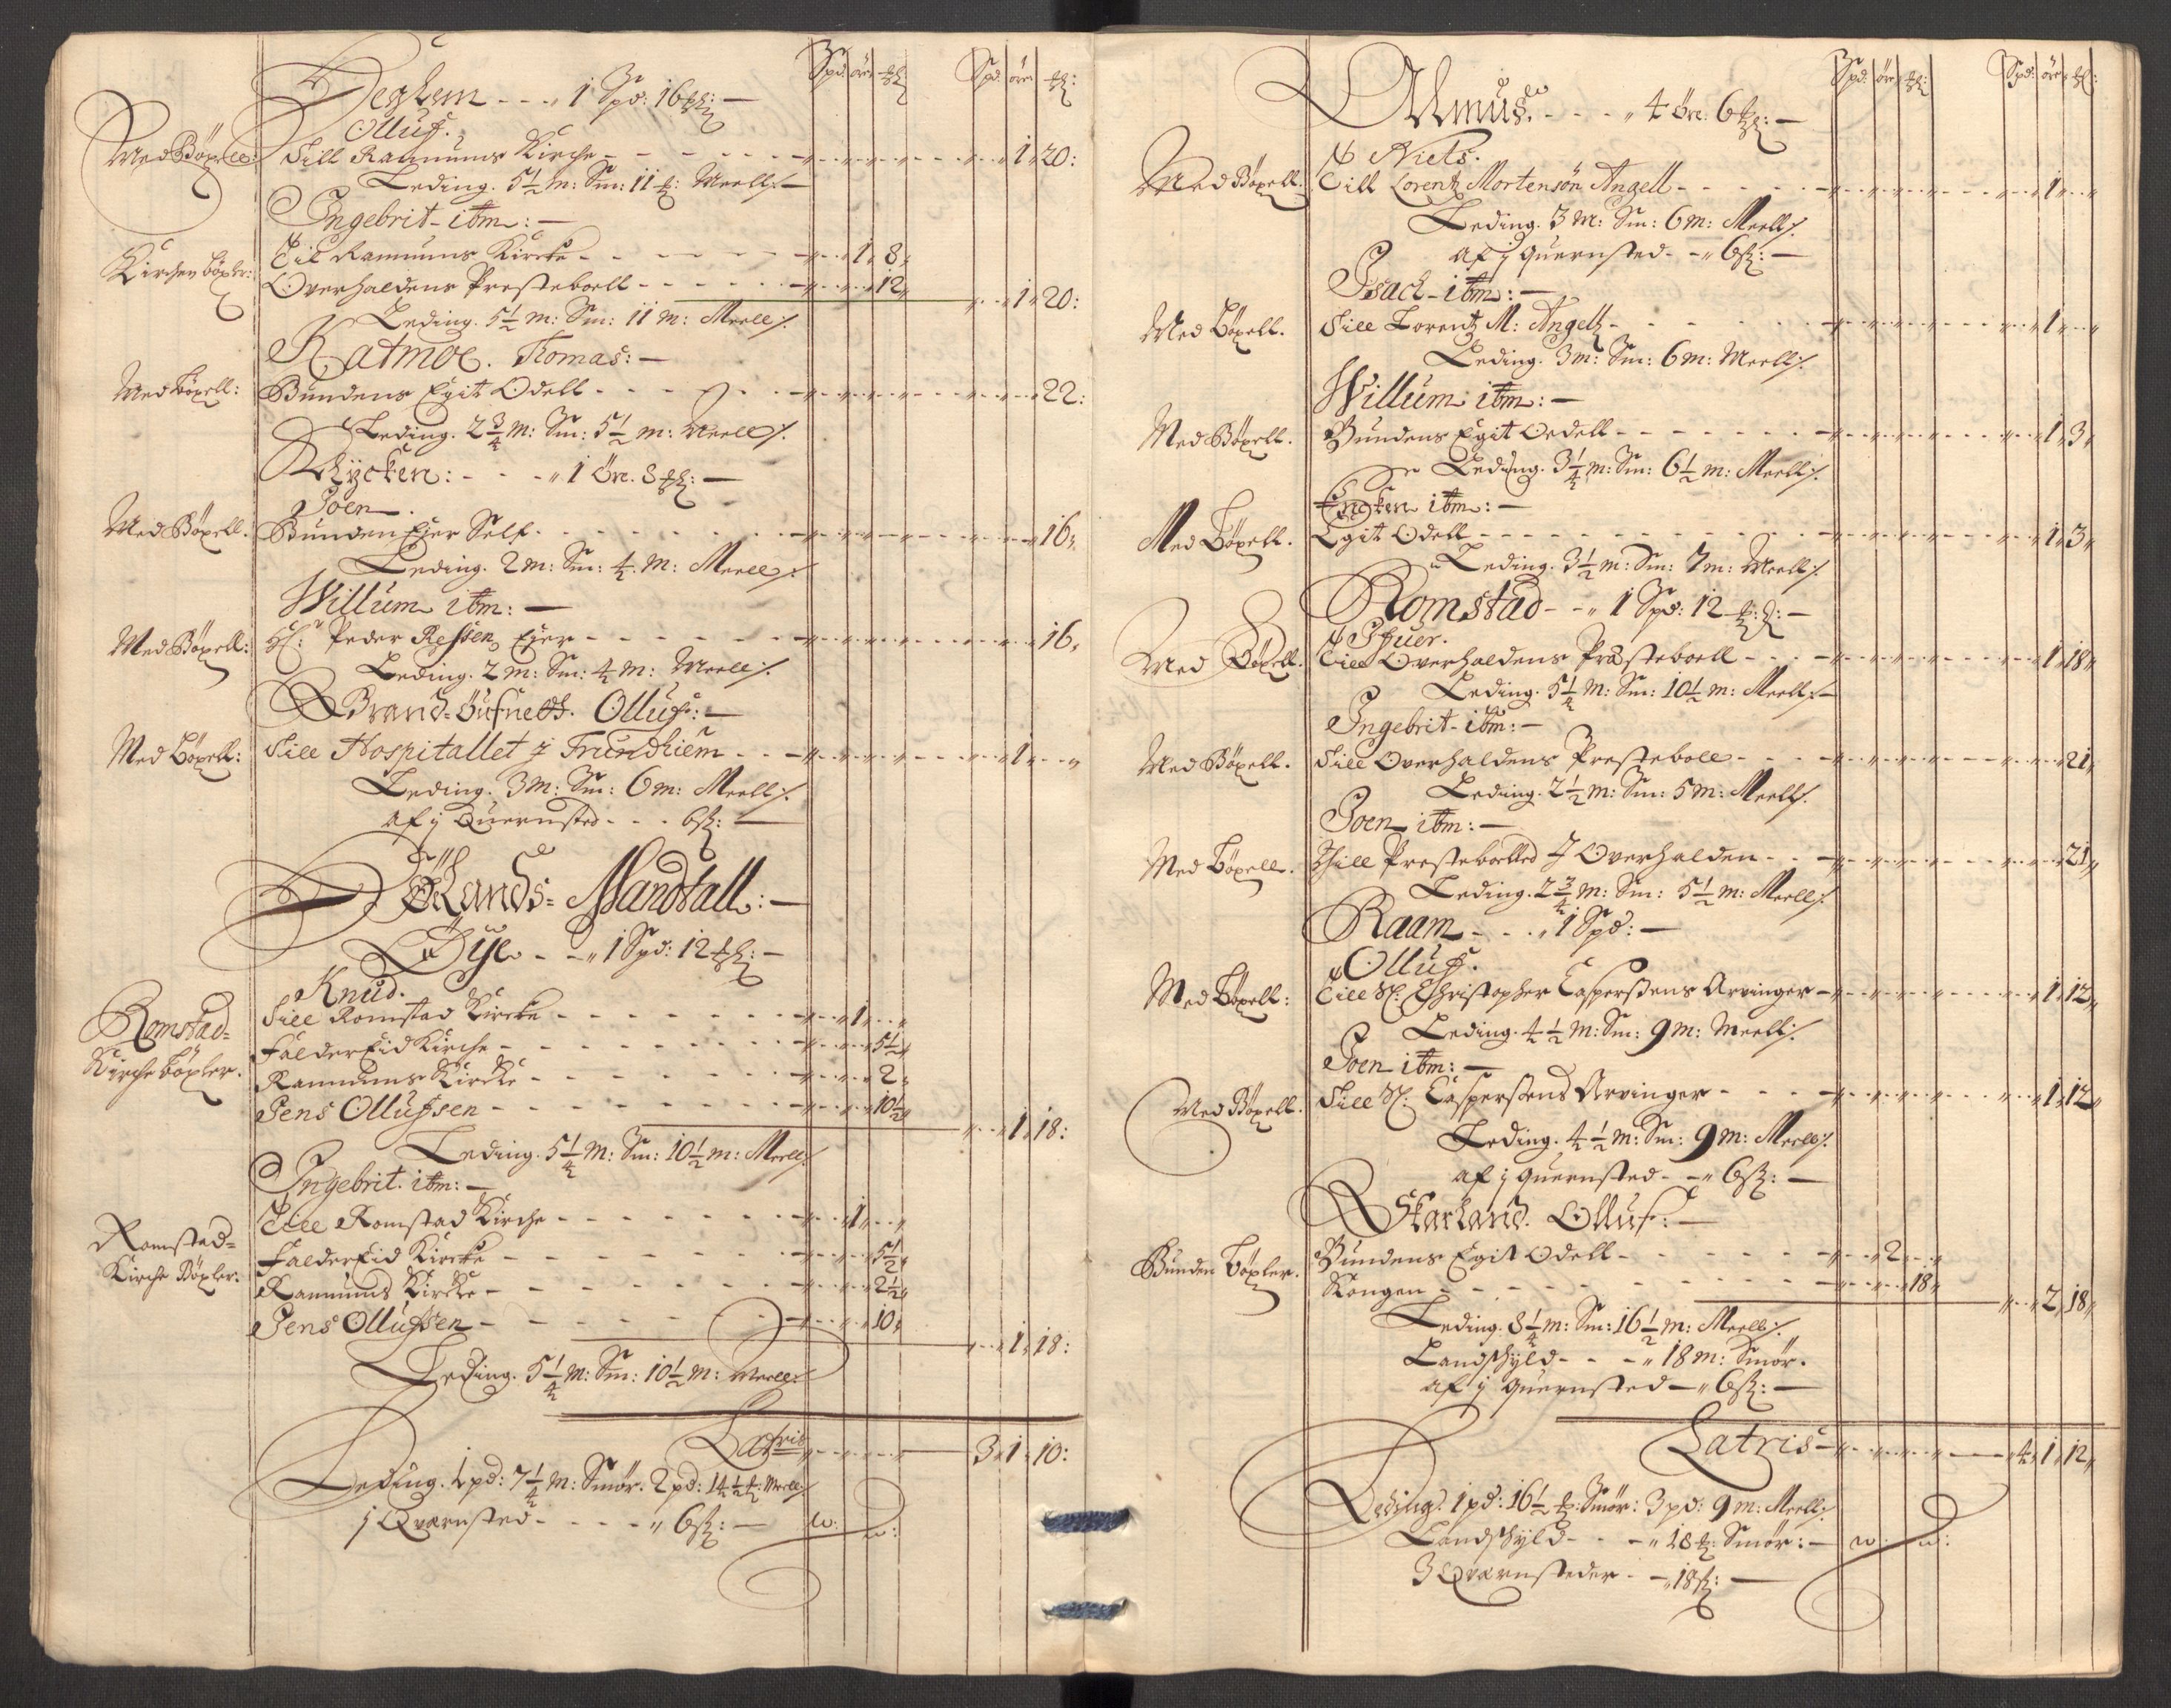 Spd: öre ℔: Spd: öre ℔:
Seglem - - - 1 Spd: 16 ℔: -
Olluf.
Med Böxell: Till Rannums Kirche - - - - 1 20:
Leding. 5½ m: Sm: 11 ℔: Meell
Ingebrit - itm: -
Kirchen böxler: Til Rannums Kirche - - - - 1 8
Overhaldens Presteboell - - - - 12 1 20:
Leding. 5½ m: Sm: 11 m: Meell
Katmoe. Thomas: -
Med böxell: Bundens Egit Odell - - - - 22:
Leding. 2¾ m: Sm: 5½ m: Meell
Rÿcken: - - - 1 öre. 8 ℔: -
Joen.
Med Böxell. Bunden Ejer Self - - - - 16
Leding. 2 m: Sm: 4 m: Meell
Willum itm: -
Med Böxell: Hr: Peder Ressen Ejer - - - - 16
Leding. 2 m: Sm: 4 m: Meell
Olluf: -
Med Böxell: Till Hospitallet j Trundhiem - - - 1
Leding. 3 m: Sm: 6 m: Meell
af j Quernsted - - - 6 ß: -
Mandtall: -
Öÿe - - 1 Spd: 12 ℔: -
Knud.
Romstad- Till Romstad Kirche - - - - 1
Kirche böxler. Falder Eid Kirche - - - - 5½
Rannums Kirche - - - - 2
Jens Ollufsen - - - - 10½ 1 18:
Leding. 5¼ m: Sm: 10½ m: Meell
Ingebrit. itm: -
Romstad- Till Romstad Kirche - - - - 1
Kirche Böxler. Falder Eid Kirche - - - - 5½
Rannums Kirche - - - - 2½
Jens Ollufsen - - - - 10 1 18:
Leding. 5¼ m: Sm: 10½ m: Meell
Latris 3 1 10:
Leding. 1 pd: 7¼ m: Smör. 2 pd: 14½ ℔: Meell
j Qvernsted - - - - 6 ß: -
Spd: öre ℔: Spd: öre ℔:
Almus. - - - 4 öre. 6 ℔: -
Niels.
Med Böxell. Till Lorentz Mortensön Angell - - - - 1
Leding. 3 m: Sm: 6 m: Meell
af j quernsted - - 6 ß: -
Isach - itm: -
Med Böxell. Till Lorentz M: Angell - - - - 1
Leding. 3 m: Sm: 6 m: Meell
Willum itm: -
Med Böxell. Bundens Egit Oedell - - - - 1 3
Leding. 3¼ m: Sm: 6½ m: Meell
itm: -
Med Böxell. Egit Odell - - - - 1 3
Leding. 3½ m: Sm: 7 m: Meell
Romstad - - 1 Spd: 12 ℔: -
Med Böxell. Till Overhaldens Præsteboell - - - - 1 18
Leding. 5¼ m: Sm: 10½ m: Meell
Ingebrit - itm: -
Med Böxell. Till Overhaldens Presteboll - - - 21
Leding. 2½ m: Sm: 5 m: Meell
Joen itm: -
Med Böxell. Till Prestebolled J Overhalden - - - 21
Leding. 2¾ m: Sm: 5½ m: Meell
Raam - - - 1 Spd: -
Olluf.
Med Böxell: Till Sl. Christopher Caspersens Arvinger - 1 12
Leding. 4½ m: Sm: 9 m: Meell
Joen itm: -
Med Böxell. Till Sl. Caspersens Arvinger - - - 1 12
Leding. 4½ m: Sm: 9 m: Meell
af j quernsted - - 6 ß: -
Skarland. Olluf: -
Bunden böxler. Bundens Egit Odell - - - - 2
Kongen - - - - 18 2 18
Leding. 8¼ m: Sm: 16½ m: Meell
Landschyld - - - 18 m: Smör.
af j quernsted - 6 ß: -
Latris 4 1 12
Leding. 1 pd: 16½ ℔: Smör: 3 pd: 9 m: Meell
Landschyld - - - 18 ℔: Smör: -
3 Qvernsteder - - 18 ß: -